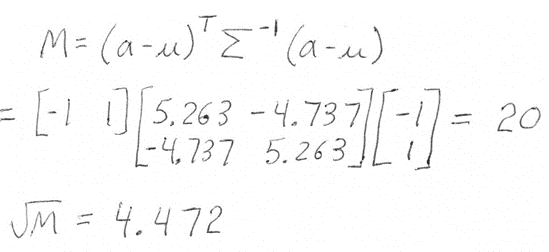 M = (a-μ)ᵀ Σ⁻¹ (a-μ)
= [-1 1] [5.263 -4.737] [-1] = 20
[-4.737 5.263] [1]
√M = 4.472